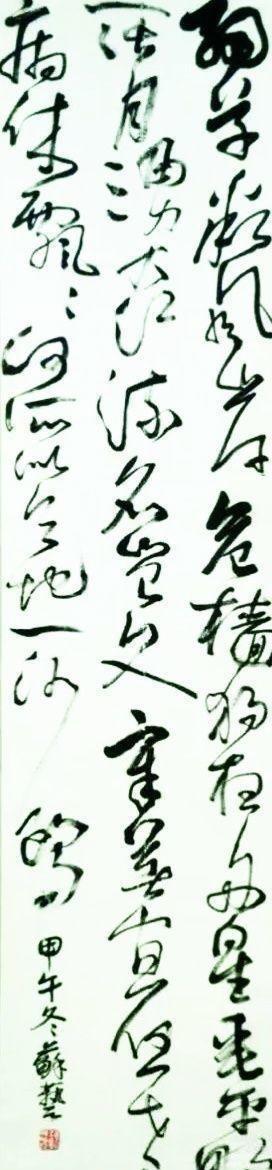 細草微風岸危檣獨夜舟星垂平野
闊月湧大江流名豈文章著官應老
病休飄〻何所似天地一沙鷗
甲午冬蘇